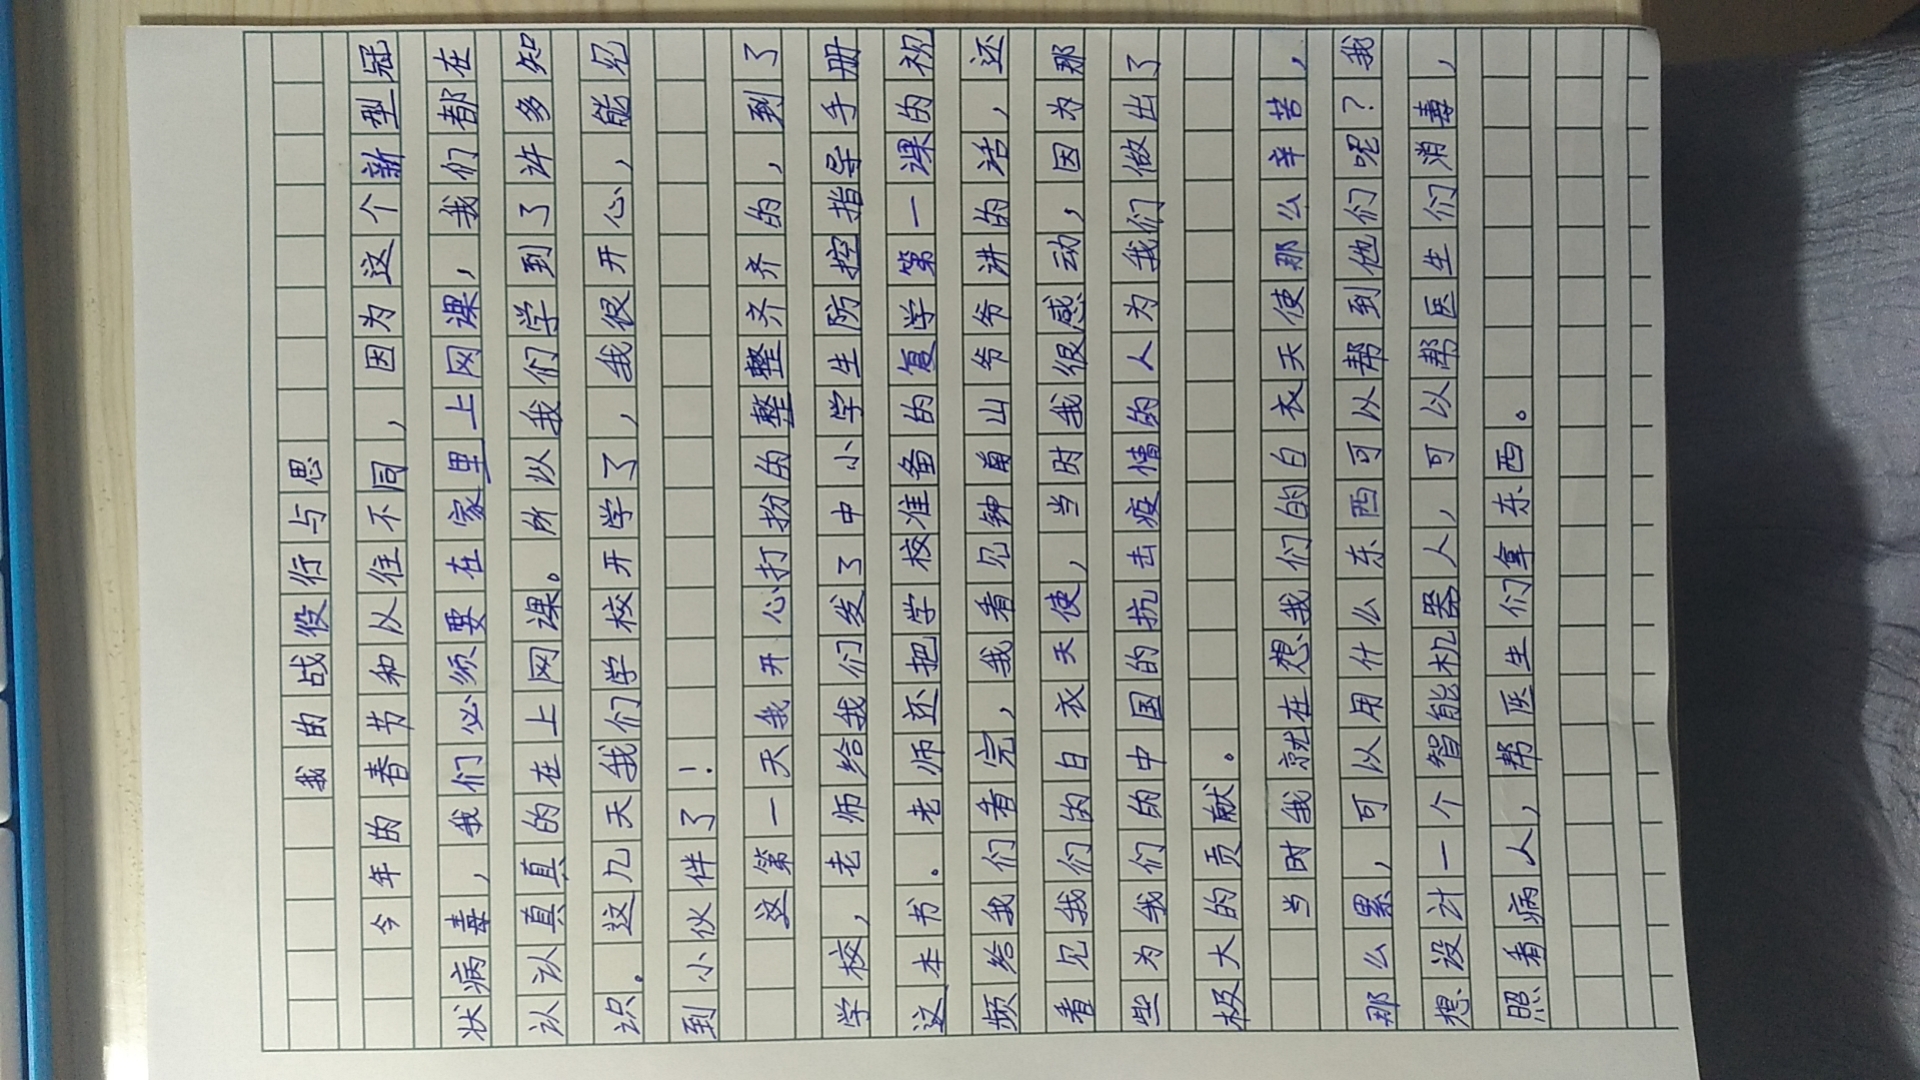 我的战役行与思
今年的春节和以往不同，因为这个新型冠
状病毒，我们必须要在家里上网课，我们都在
认认真真的在上网课。所以我们学到了许多知
识。这几天我们学校开学了，我很开心，能见
到小伙伴了！
这第一天我开心打扮的整整齐齐的，到了
学校，老师给我们发了中小学生防控指导手册
这本书。老师还把学校准备的复学第一课的视
频给我们看完，我看见钟南山爷爷讲的话，还
看见我们的白衣天使，当时我很感动，因为那
些为我们的中国的抗击疫情的人为我们做出了
极大的贡献。
当时我就在想我们的白衣天使那么辛苦，
那么累，可以用什么东西可以帮到他们呢？我
想设计一个智能机器人，可以帮医生们消毒，
照看病人，帮医生们拿东西。